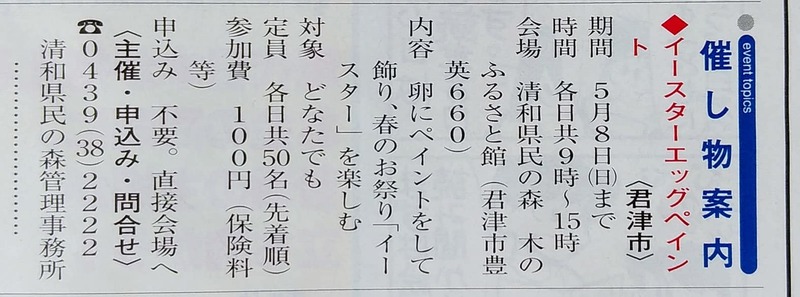 event topics
催し物案内
◆イースターエッグペイン
ト
〈君津市〉
期間　5月8日(日)まで
時間　各日共9時〜15時
会場　清和県民の森　木の
ふるさと館（君津市豊
英660）
内容　卵にペイントをして
飾り、春のお祭り「イー
スター」を楽しむ
対象　どなたでも
定員　各日共50名(先着順)
参加費　100円（保険料
等）
申込み　不要。直接会場へ
〈主催・申込み・問合せ〉
☎0439(38)2222
清和県民の森管理事務所